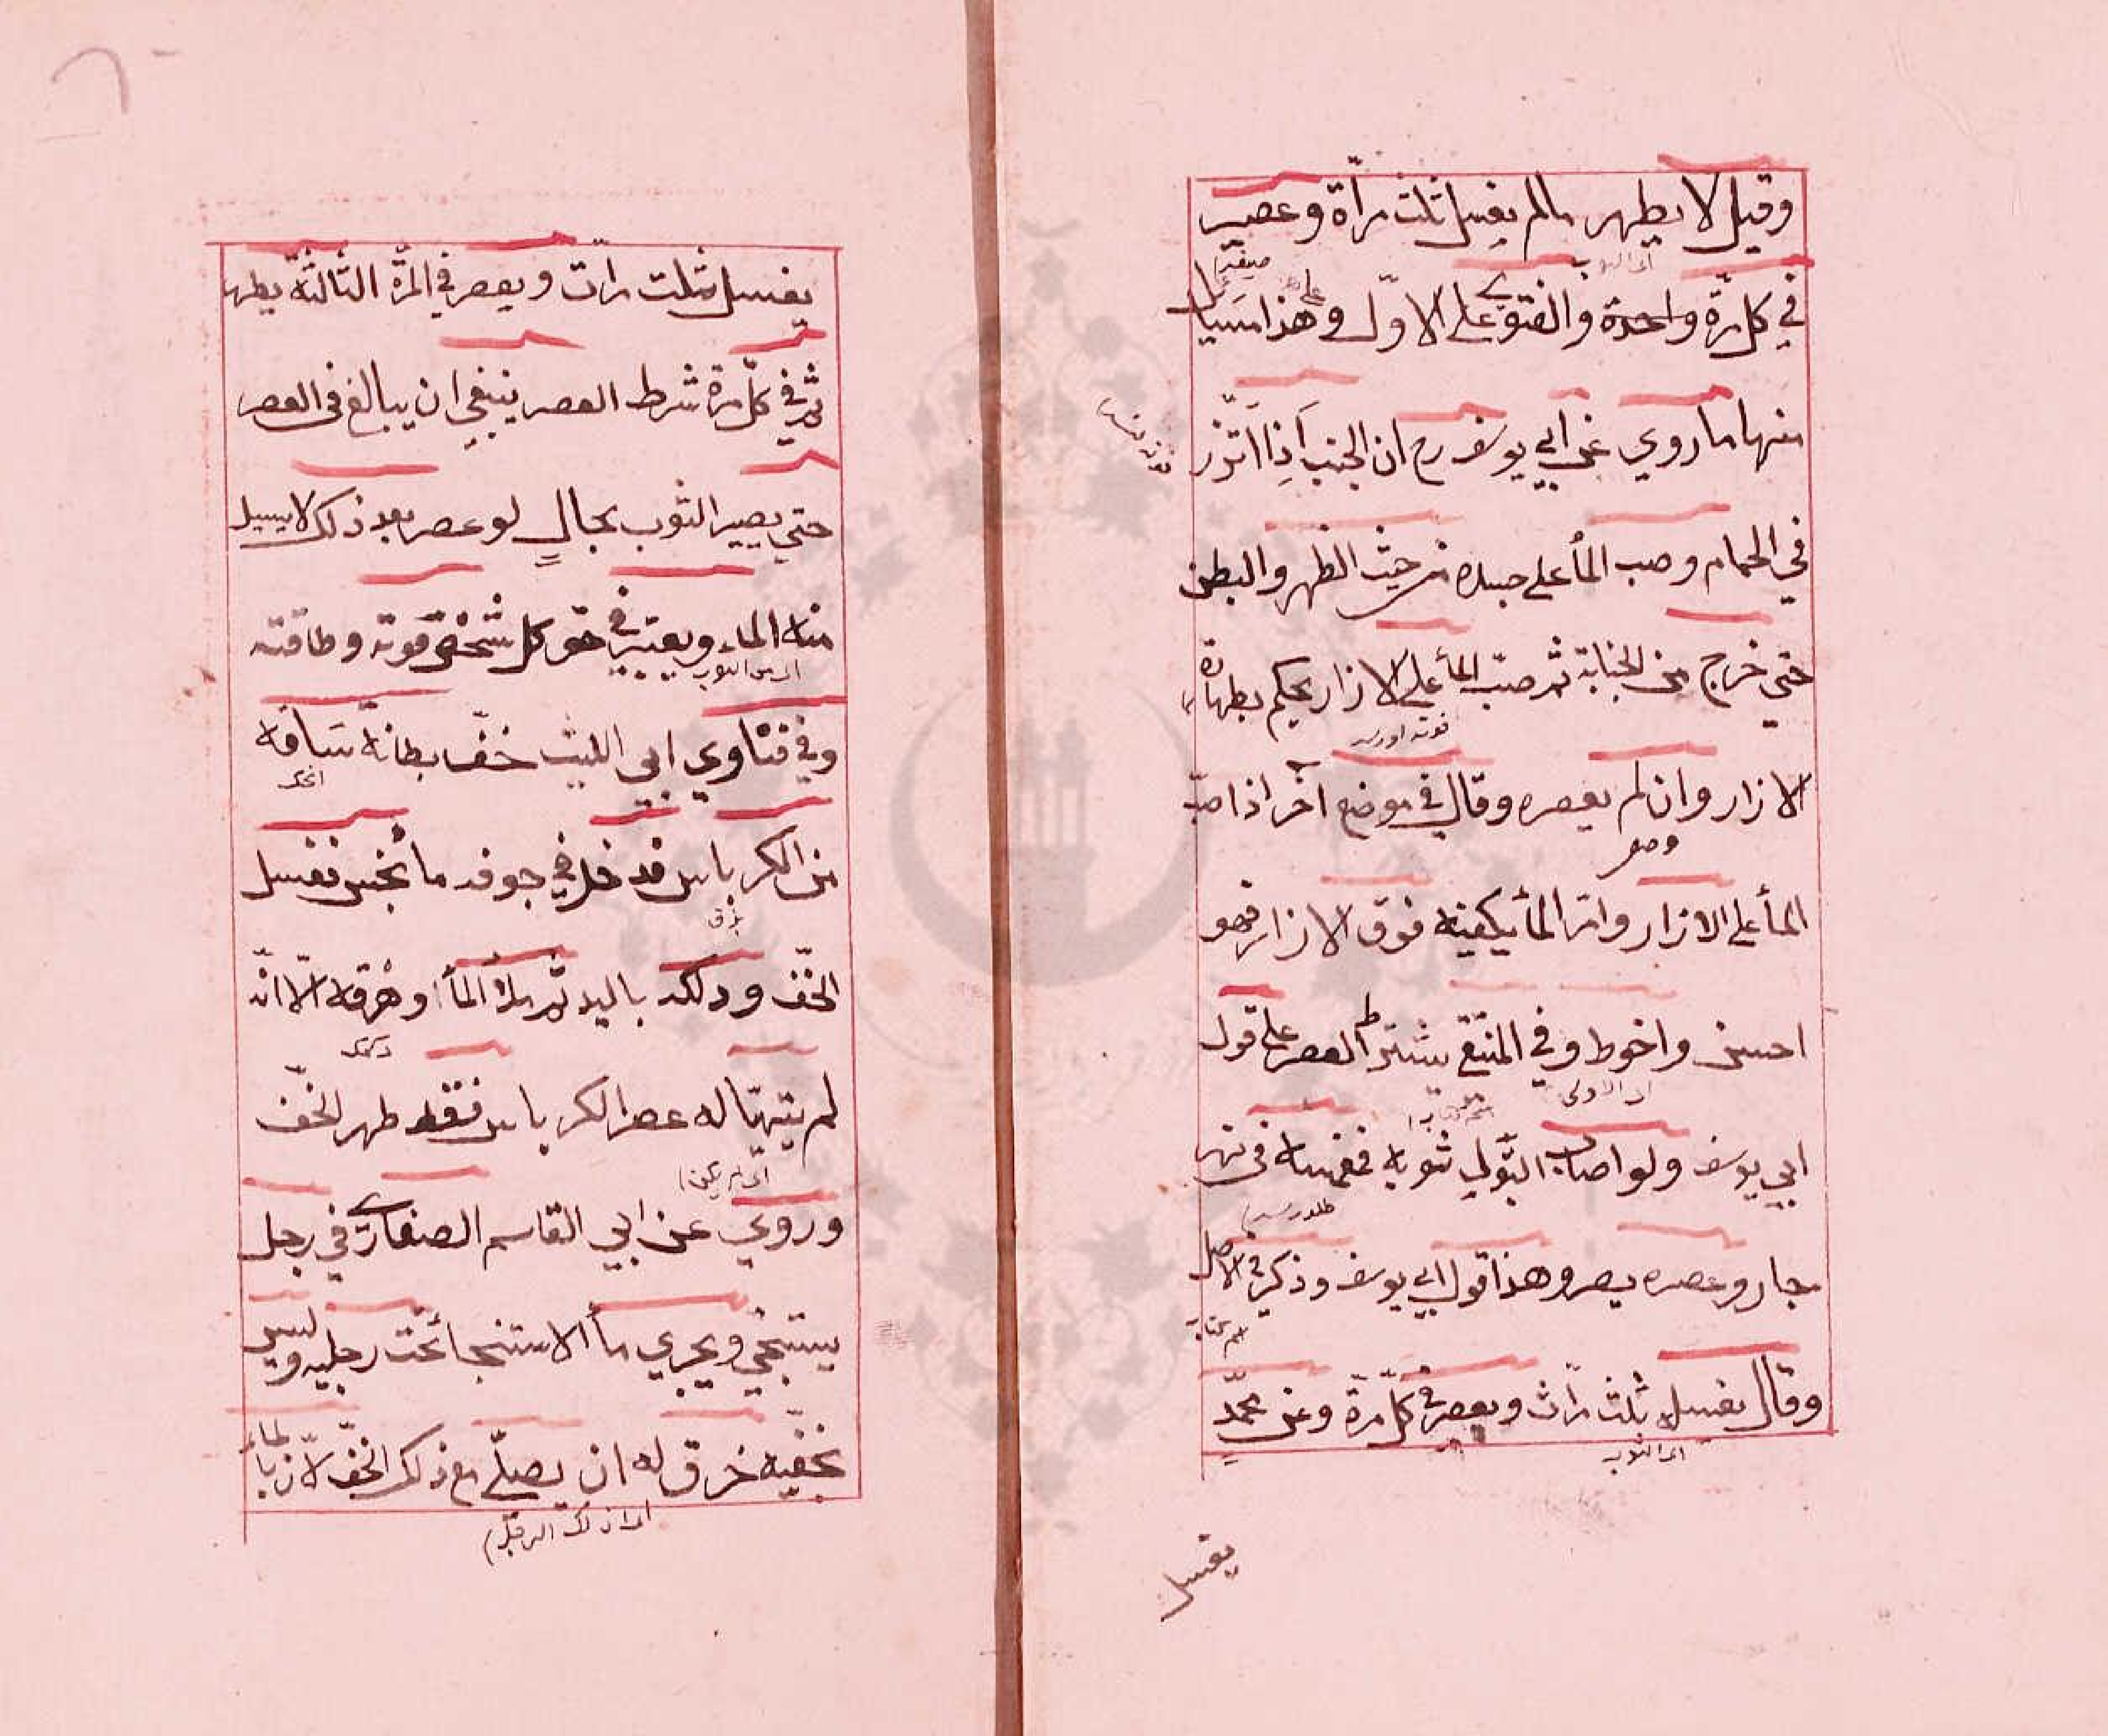 وقيل لا يطهر مالم يغسل ثلث مرآة وعصر
اى الثوب
في كل مرّة واحدة والفتوى على الاوّل وعلى هذا مسايل
منها ما روي عن ابي يوسف رح ان الجنب اذا اتّزر
في الحمام وصب المأ على جسده من حيث الظهر والبطن
حتي خرج من الجنابة ثم صبّ المأ على الازار يحكم بطهارة
الازار وان لم يعصره وقال في موضع آخر اذا صبّ
المأ على الازار وامرّ المأ بكفيه فوق الازار فهو
احسن واحوط وفي المنتقي يشترط العصر على قول
ابي يوسف ولو اصاب البول ثوبه فغمسه في نهر
جار وعصره يصر وهذا قول ابي يوسف وذكر في الاصل
وقال يغسله ثلث مرّات ويعصر في كلّ مرّة وعن محمّد
اى الثوب
يغسل
يغسل ثلث مرات ويعصر في المرّة الثالثة يطهر
ثم في كلّ مرّة شرط العصر ينبغي ان يبالغ في العصر
حتي يصير الثوب بحال لو عصر بعد ذلك لا يسيل
منه الماء ويعتبر في حق كل شخص قوته وطاقته
اى من الثوب
وفي فتاوي ابي الليث خفّ بطانة ساقه
من الكرباس فدخل في جوفه مأ نجس فغسل
الخفّ ودلكه باليد ثم ملأ المأ وهرقه الّا انّه
لم يتهيّأ له عصر الكرباس فقد طهر الخفّ
اى لم يكن
وروي عن ابي القاسم الصفارى في رجل
يستنجي ويجري مأ الاستنجا تحت رجليه وليس
بخفّيه خرق له ان يصلّي مع ذلك الخفّ لانّ بالماء
اى ان ذلك الرجل